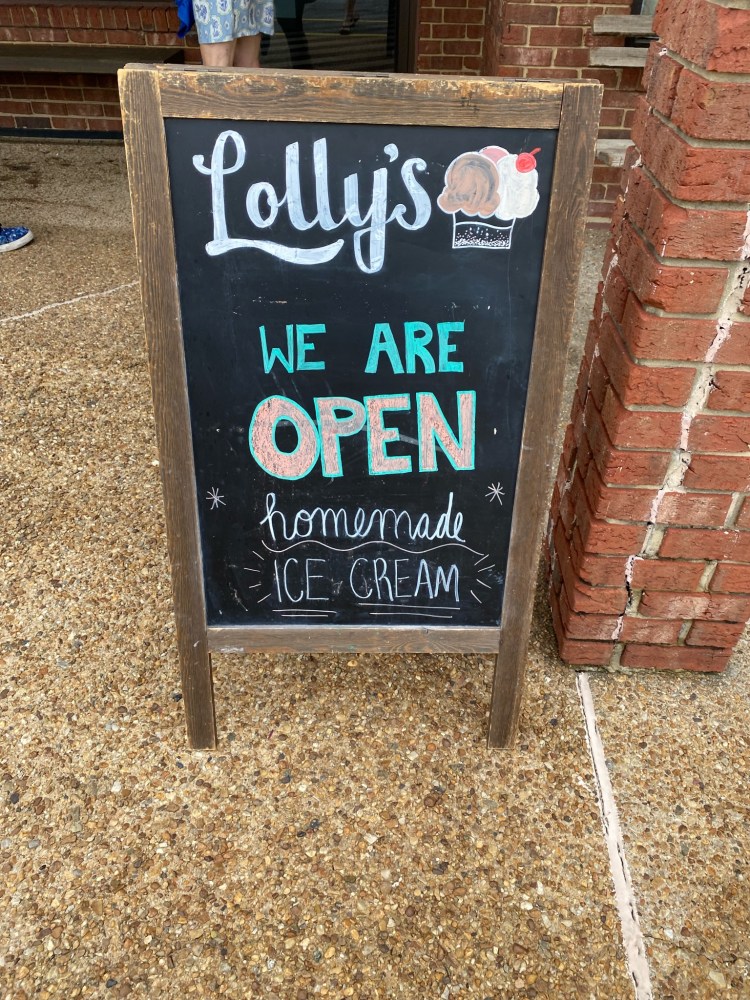 Lolly's
WE ARE
OPEN
homemade
ICE CREAM